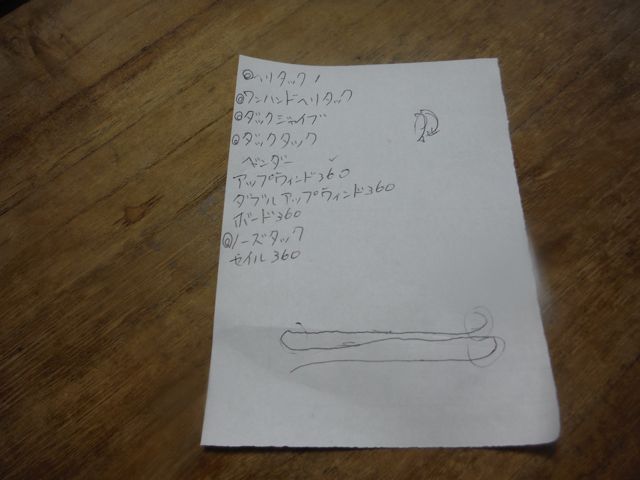 ◎ヘリタック!
◎ワンハンドヘリタック
◎ダックジャイブ
◎ダックタック
ベンダー
アップウィンド360
ダブルアップウィンド360
ボード360
◎ノーズタック
セイル360